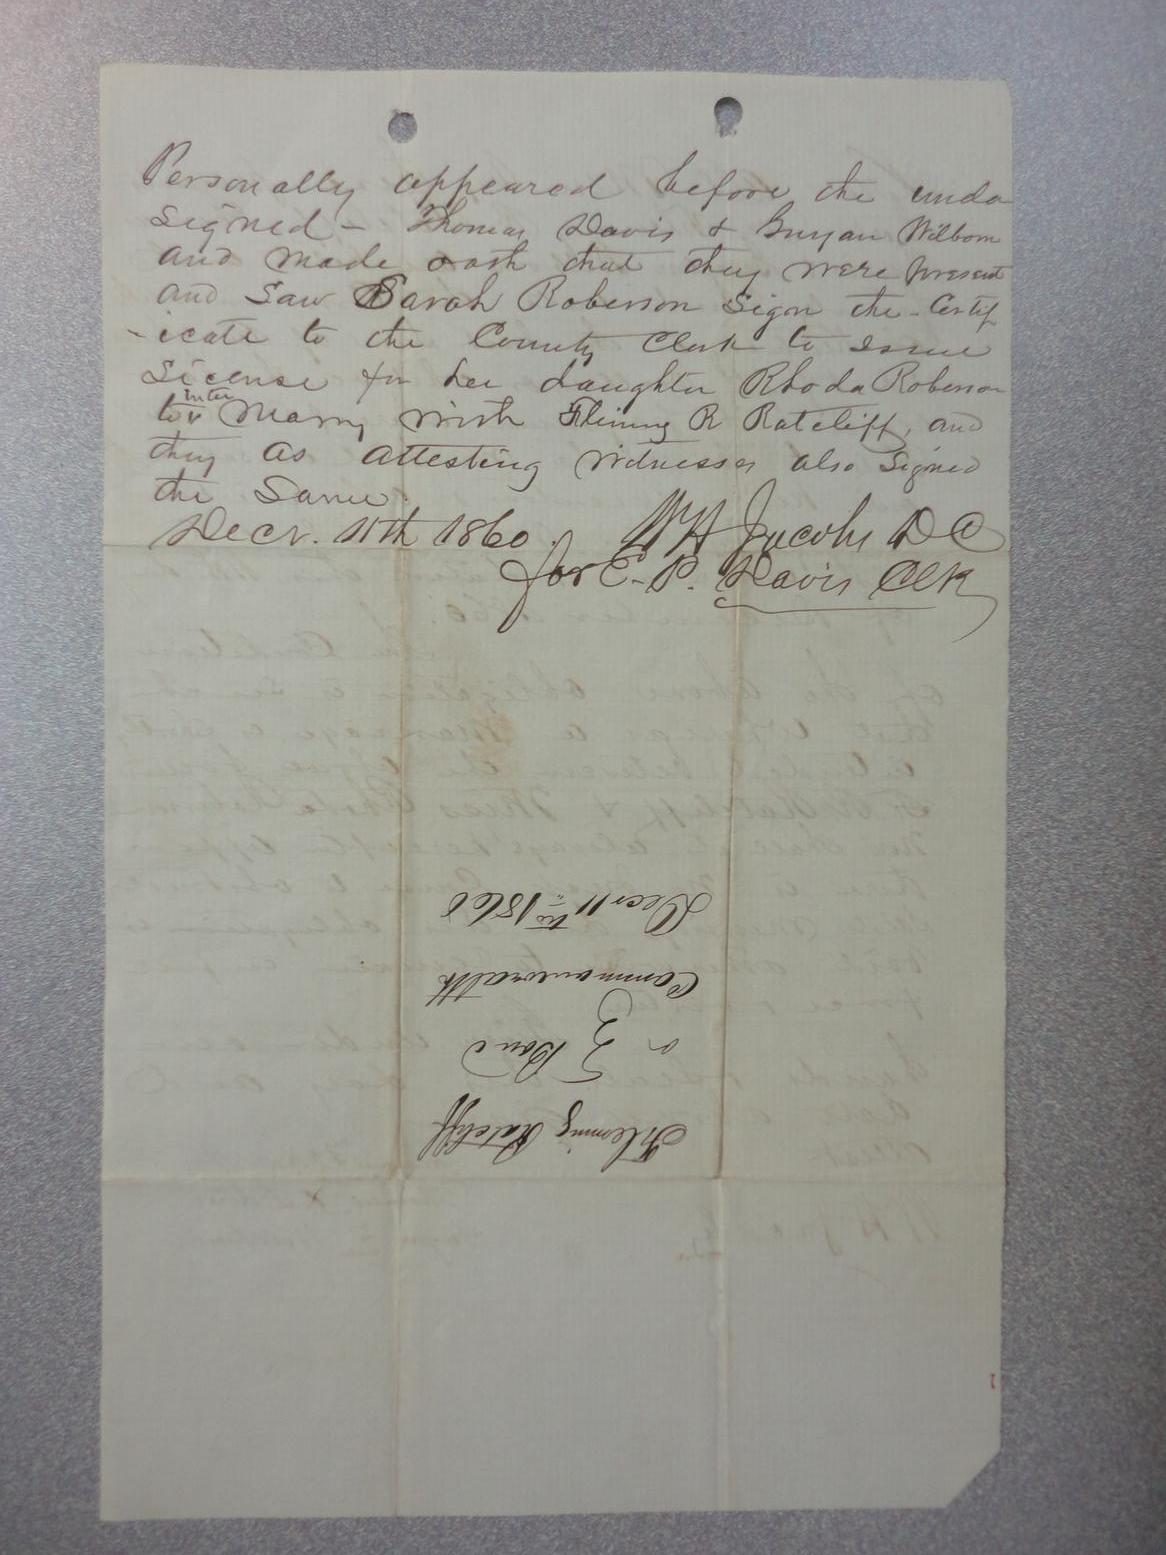 Personally appeared before the unda
signed - Thomas Davis & Wilborn
and made oath that they were present
and saw Sarah Roberson sign the Certif
-icate to the County Clerk to issue
License for her daughter Rhoda Roberson
to inter Marry with R Ratcliff, and
they as attesting witnesses also signed
the same.
Decr. 11th 1860. W H Jacobs D C
for E. P. Davis Clk
Flemming Ratcliff
Bond
Commonwealth
Decr 11th 1860